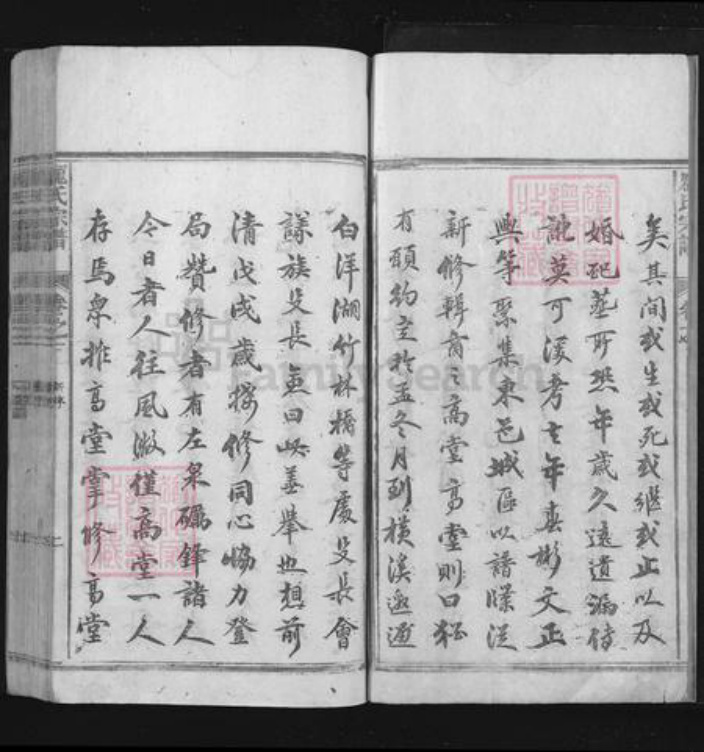 矣其間或生或死或継或止以及
婚配塟所恐年歲久遠遺漏侍
訛莫可湲考士年真彬文正
興等聚集東邑城區以譜牒従
新修輯商之高堂高堂則曰猛
有頭約定於孟冬月到橫溪邀通
白洋湖竹林橋等處叟長會
議族叟長亦曰此善舉也想前
清戊戌歲接修同心恊力登
局贊修者有左泉礪鋒諸人
令日者人往風微僅高堂一人
存焉衆推高堂掌修高堂
氏宗譜
FamilySearch